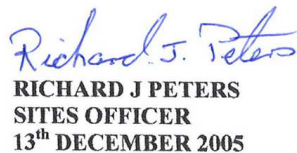 Richard J. Peters
RICHARD J PETERS
SITES OFFICER
13th DECEMBER 2005